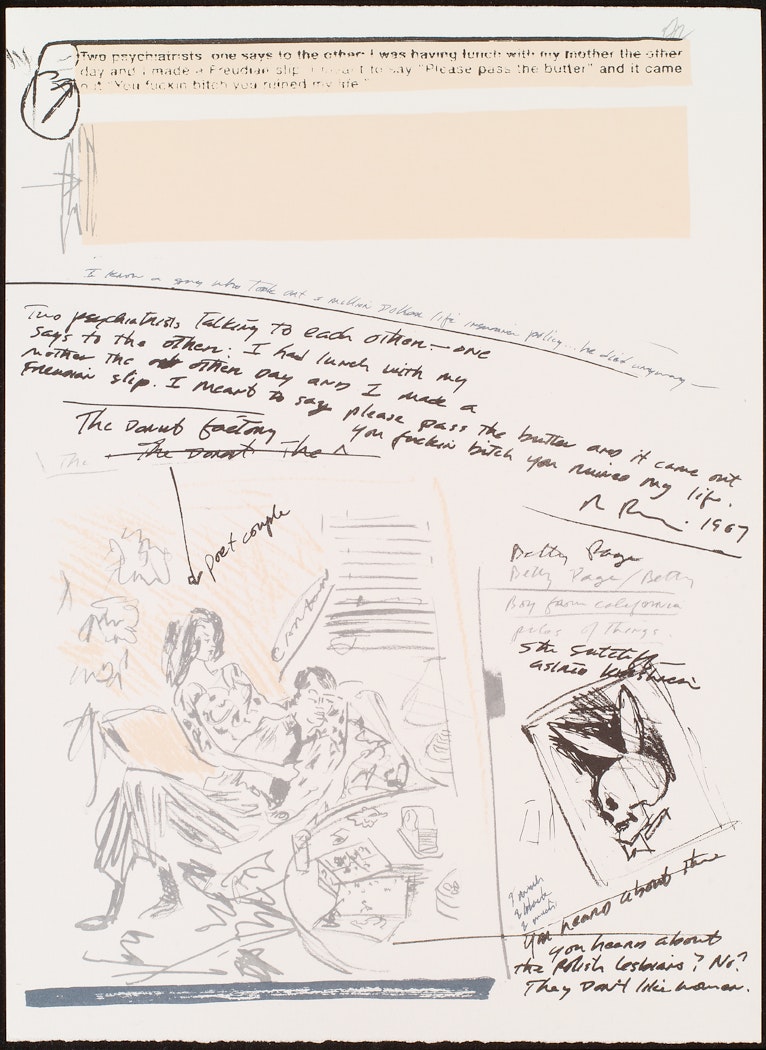 Two psychiatrists, one says to the other: I was having lunch with my mother the other
day and I made a Freudian slip, I meant to say "Please pass the butter" and it came
out "You fuckin bitch you ruined my life."
I know a guy who took out a million Dollar life insurance policy... he died anyway
Two psychiatrists Talking to each other.— one
says to the other: I had lunch with my
mother the other Day and I made a
Freudian slip. I meant to say please pass the butter and it came out
You fuckin bitch you ruined my life.
1967
The Donut factory
The Donut The
The
poet couple
Betty Page
Betty Page/Betty
Boy from California
piles of Things.
Stu Sutcliff
astrid
You heard about the
You heard about
the Polish lesbians? No?
They Don't like women.